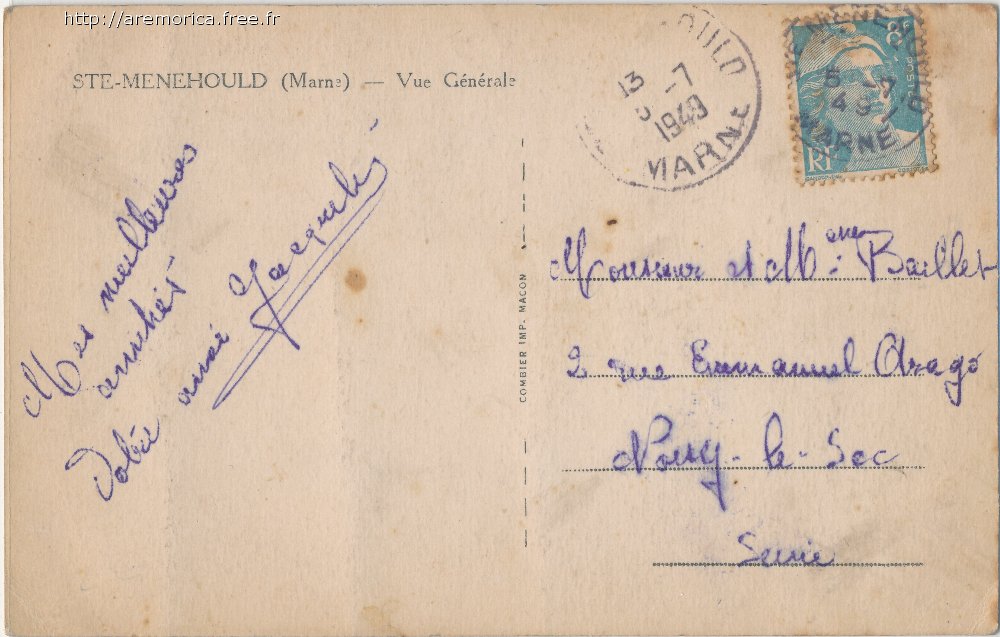 http://aremorica.free.fr
STE-MENEHOULD (Marne) — Vue Générale
Mes meilleures
amitiés
Jacqueline
COMBIER IMP. MACON
13 -7
1949
MARNE
5 -7
49
MARNE
RF
Monsieur et Mme Baillet
2 rue Emmanuel Arago
Noisy-le-Sec
Seine